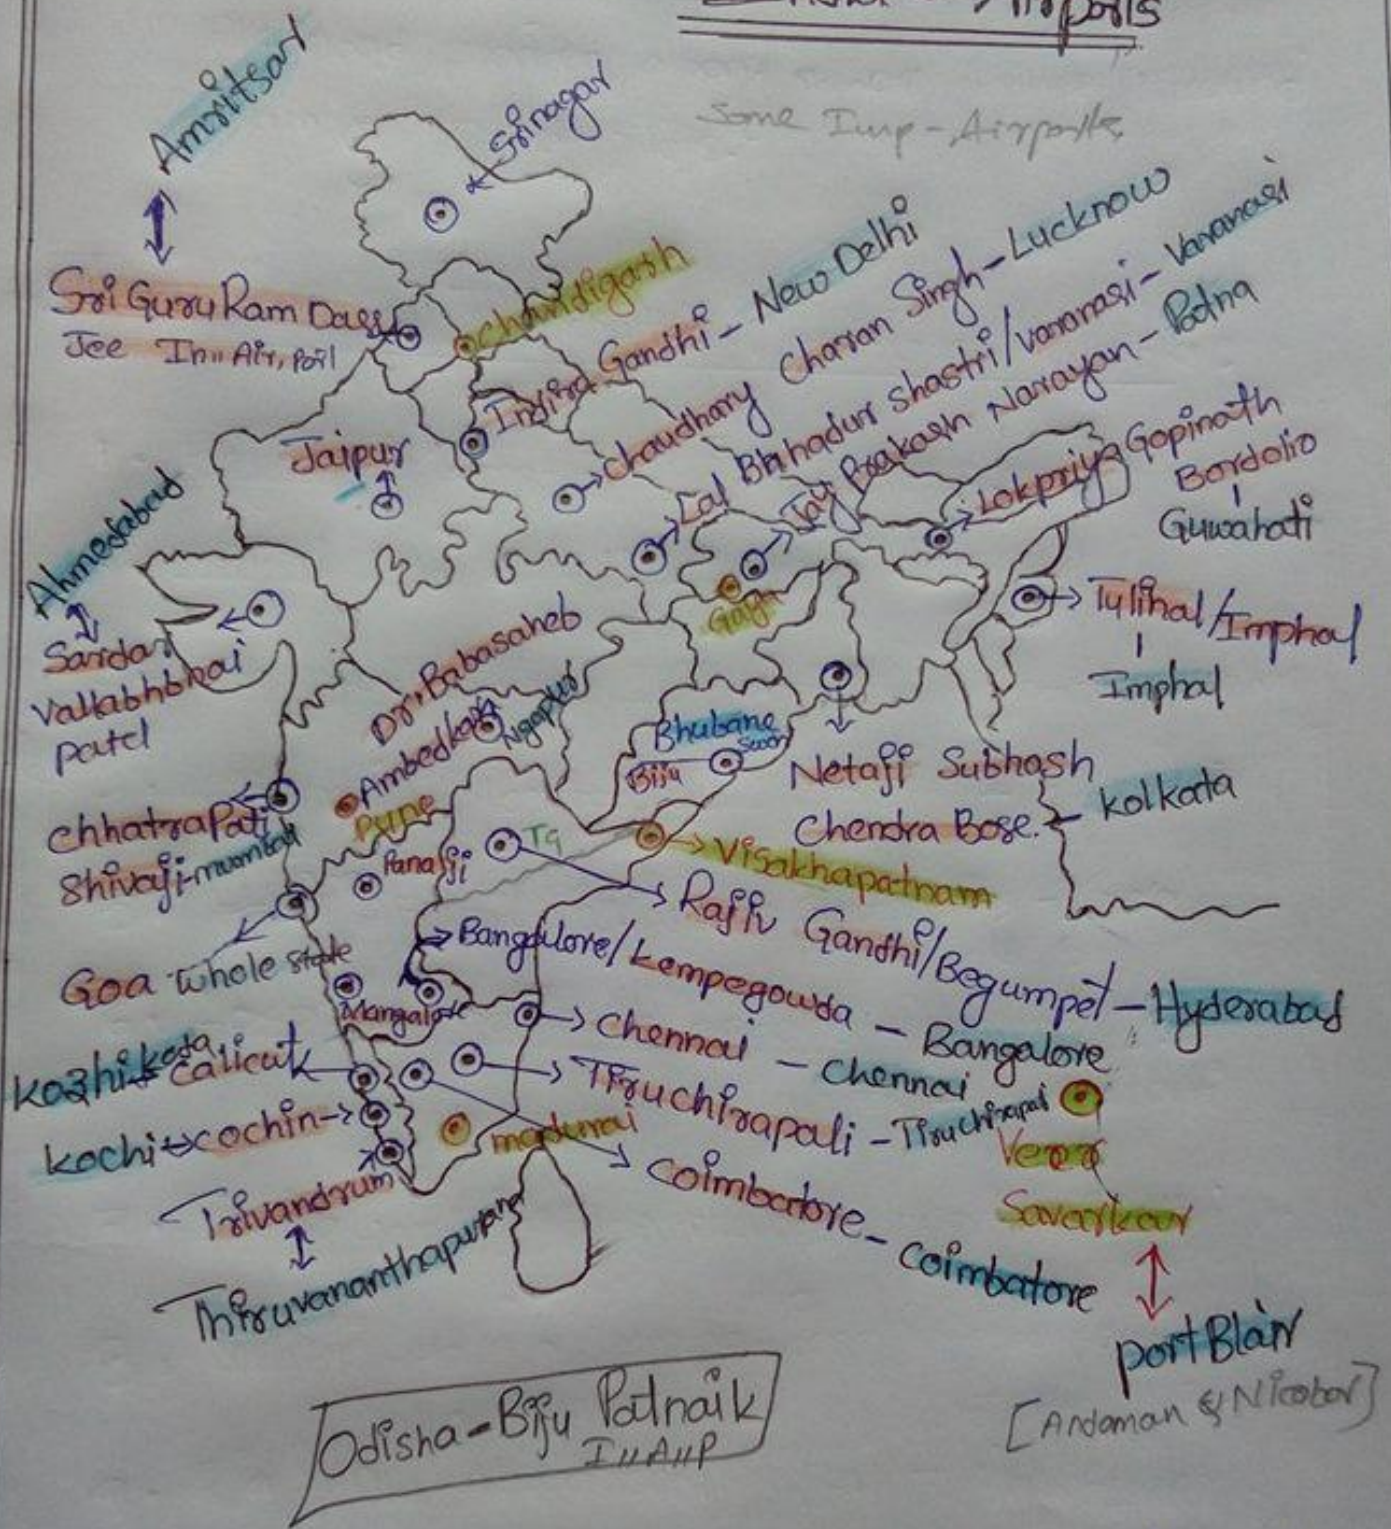 Airports
Some Imp - Airports
Amritsar
Srinagar
Sri Guru Ram Dass
Jee In" Air, Port
Chandigarh
Indira Gandhi - New Delhi
Chaudhary Charan Singh - Lucknow
Lal Bahadur Shastri/Varanasi - Varanasi
Jay Prakash Narayan - Patna
Lokpriya Gopinath
Bordolio
Guwahati
Jaipur
Ahmedabad
Sardar
Vallabhbhai
Patel
Gaya
Tulihal/Imphal
Imphal
Dr. Babasaheb
Ambedkar
Nagpur
Bhubane
swar
Biju
Netaji Subhash
Chendra Bose.
Kolkata
Chhatrapati
Shivaji-mumbai
Pune
Panaji
Tg
Visakhapatnam
Rajiv Gandhi/Begumpet - Hyderabad
Goa - Whole State
Bangalore/Kempegowda - Bangalore
Mangalore
Chennai - Chennai
Kozhikoda
Calicut
Tiruchirapali - Tiruchirapali
Kochi
Cochin
madurai
Coimbatore - Coimbatore
Trivandrum
Thiruvananthapuram
Veer
Savarkar
Port Blair
[Andaman & Nicobar]
Odisha - Biju Patnaik
I"A"P